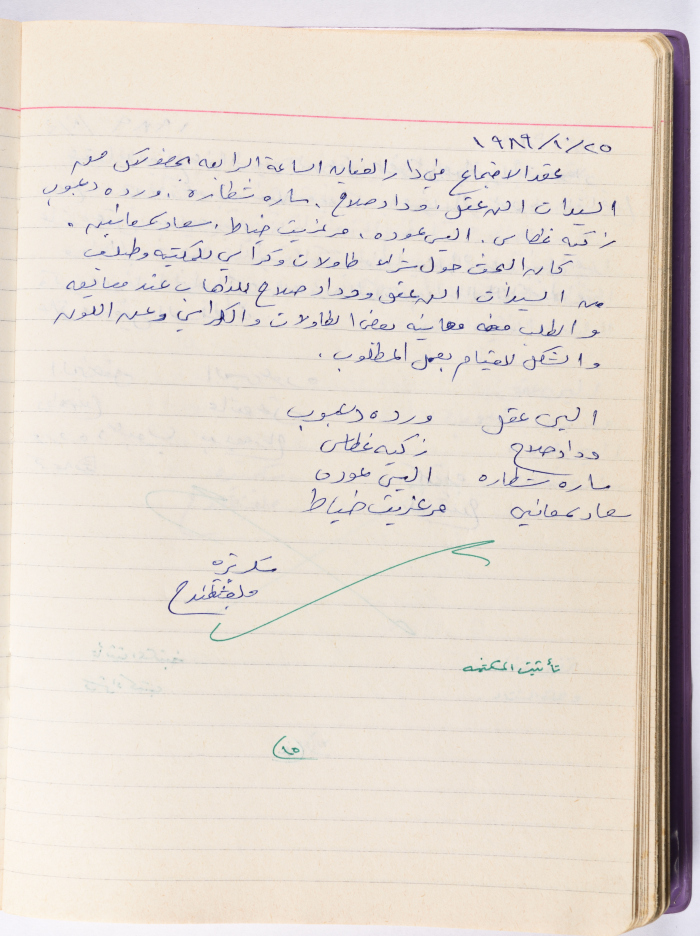 ١٩٨٩/١٠/٢٥
عقد الاجتماع في دار الضيافه الساعة الرابعه بحضور كل من
السيدات الن عقل، وداد صلاح، ساره شطاره، ورده دعبوب
زكيه غطاس، اليس عوده، مرغريت خياط، سعاد سمعانيه.
كان البحث حول شراء طاولات وكراسي للمكتبه وطلب
من السيدات الن عقل ووداد صلاح للذهاب عند مصانعه
والطلب معاينه بعض الطاولات والكراسي وعن اللون
والشكل للقيام بعمل المطلوب.
الين عقل ورده دعبوب
وداد صلاح زكيه غطاس
ساره شطاره اليس عوده
سعاد سمعانيه مرغريت خياط
سكرتيره
تأثيث المكتبه
١٥